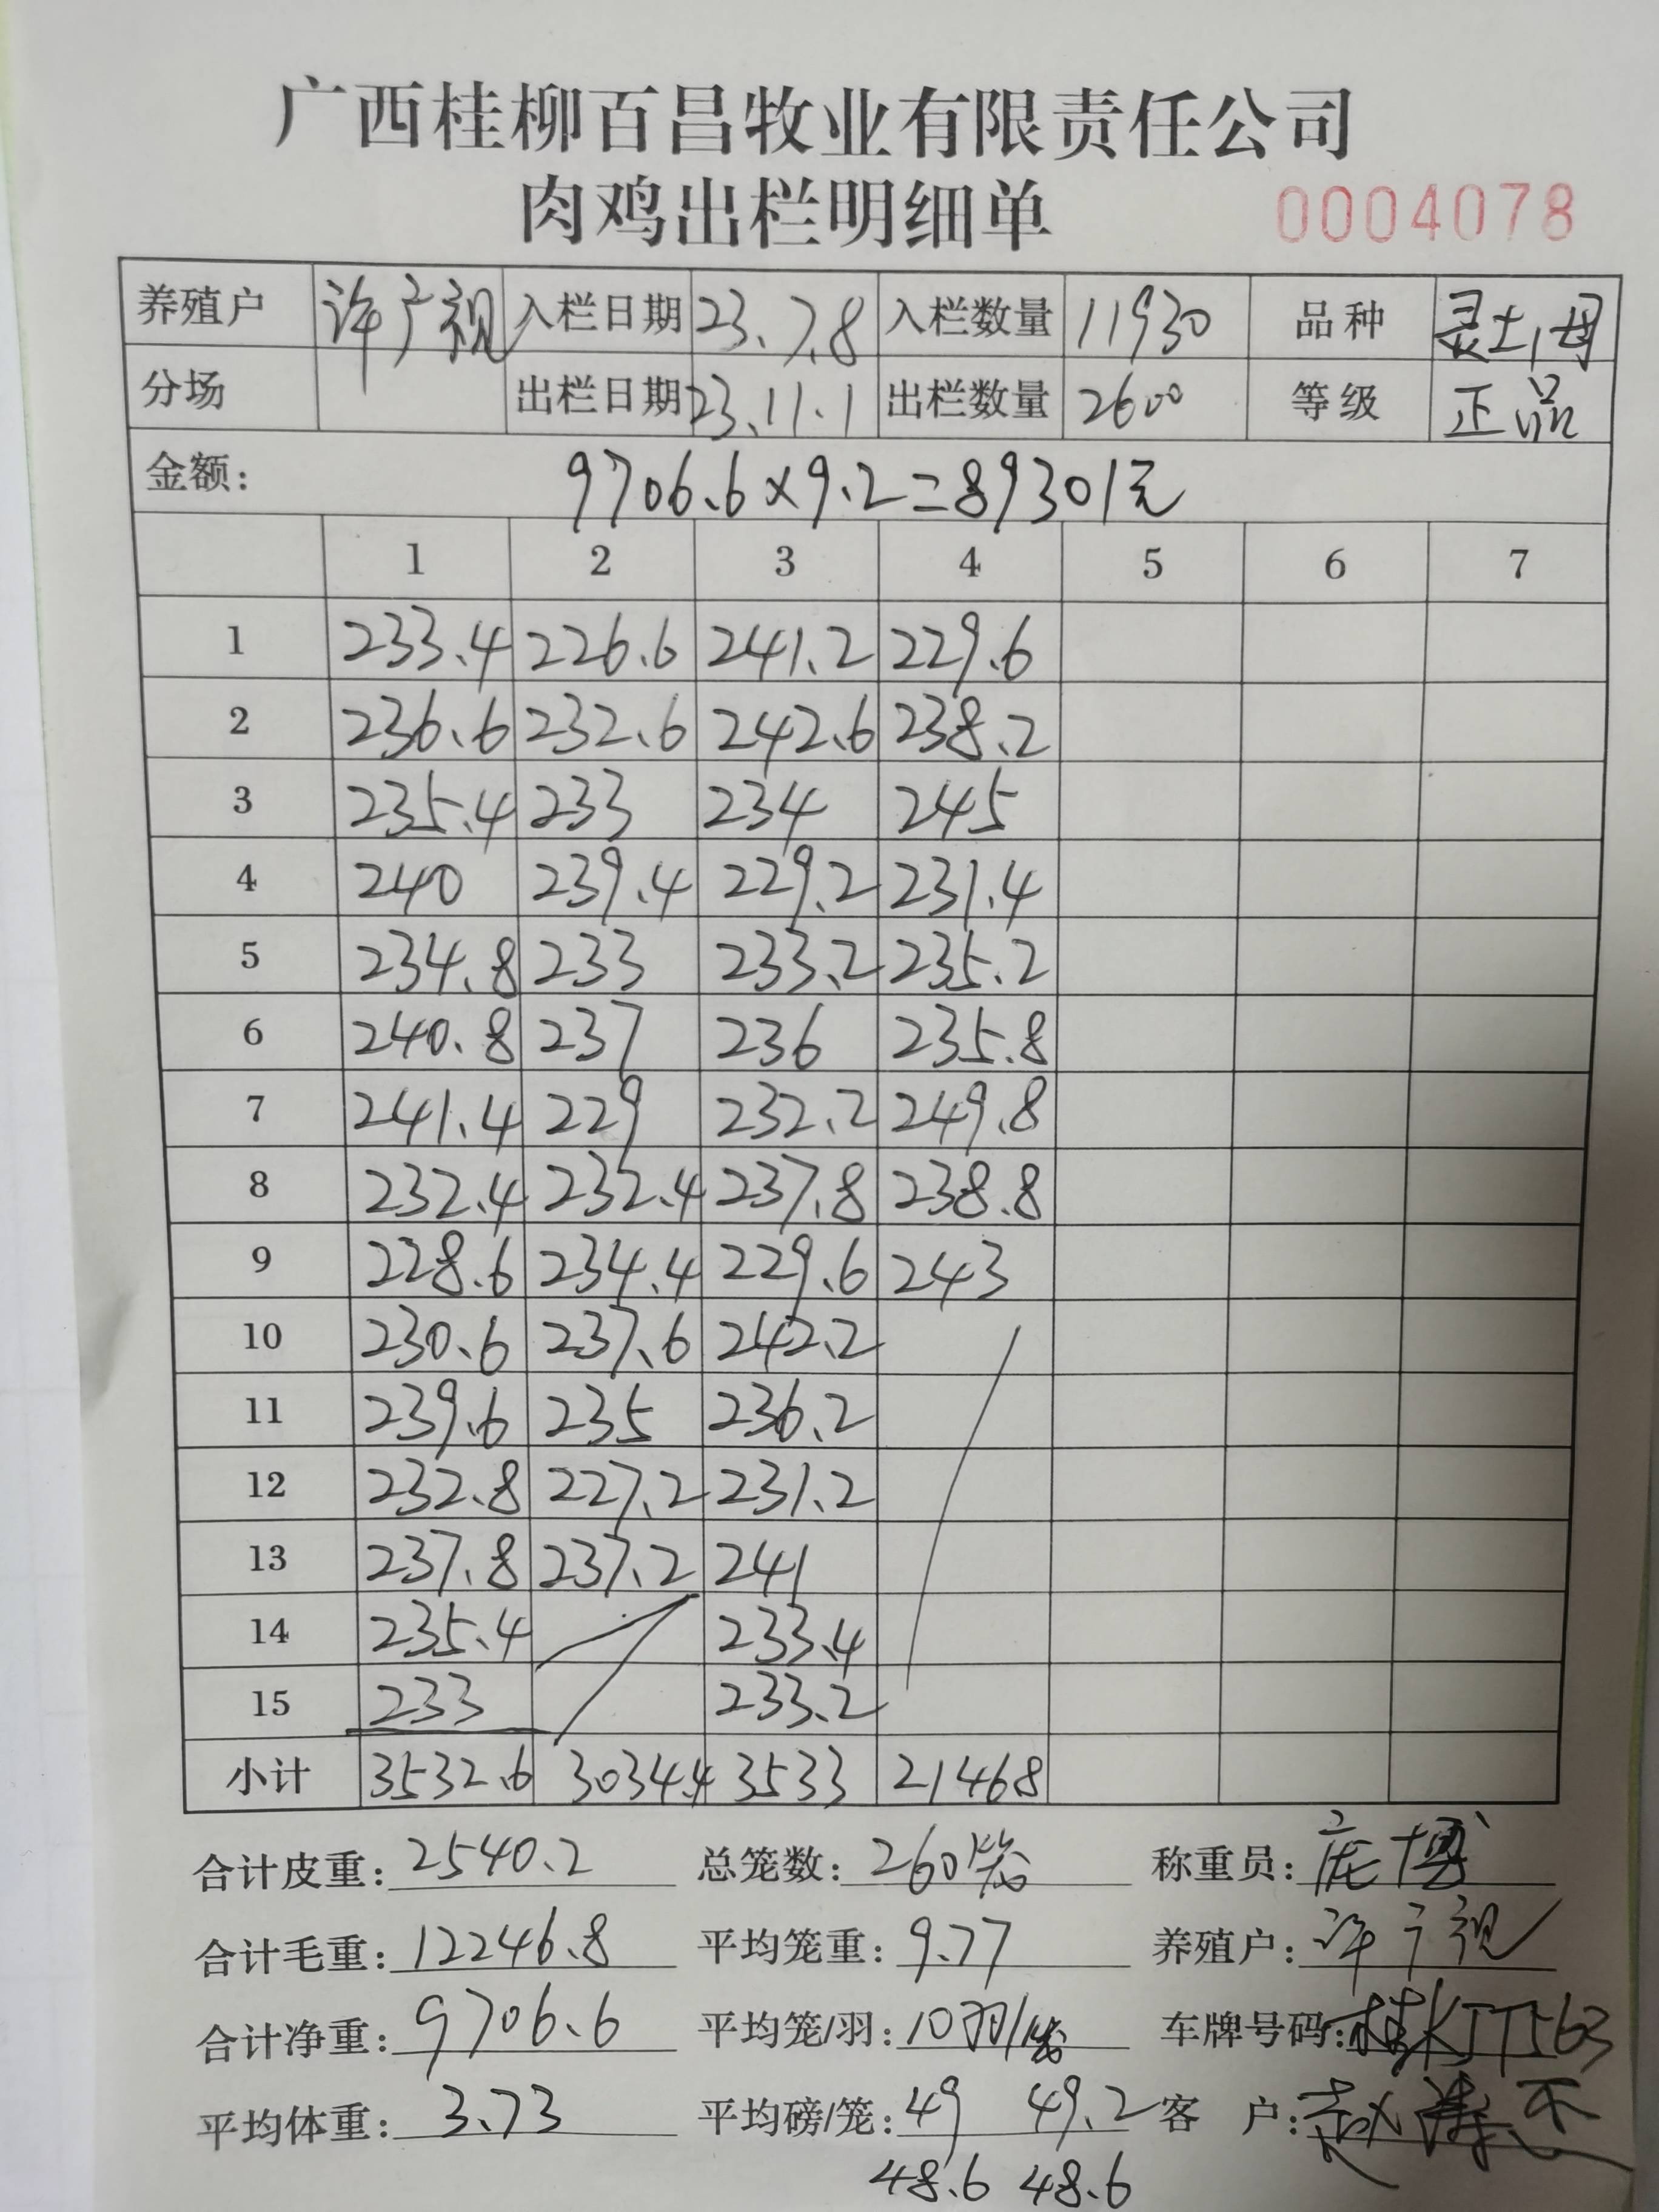 广西桂柳百昌牧业有限责任公司
肉鸡出栏明细单 0004078
养殖户 许产视 入栏日期 23.7.8 入栏数量 11930 品种 灵土1母
分场 出栏日期 23.11.1 出栏数量 2600 等级 正品
金额: 9706.6×9.2=89301元
1 2 3 4 5 6 7
1 233.4 226.6 241.2 229.6
2 236.6 232.6 242.6 238.2
3 235.4 233 234 245
4 240 239.4 229.2 231.4
5 234.8 233 233.2 235.2
6 240.8 237 236 235.8
7 241.4 229 232.2 249.8
8 232.4 232.4 237.8 238.8
9 228.6 234.4 229.6 243
10 230.6 237.6 242.2
11 239.6 235 236.2
12 232.8 227.2 231.2
13 237.8 237.2 241
14 235.4 233.4
15 233 233.2
小计 3532.6 3034.4 3533 21468
合计皮重: 2540.2 总笼数: 260笼 称重员: 庞博
合计毛重: 12246.8 平均笼重: 9.77 养殖户:
合计净重: 9706.6 平均笼/羽: 10羽/笼 车牌号码: 桂KJT563
平均体重: 3.73 平均磅/笼: 49 49.2 客 户:
48.6 48.6